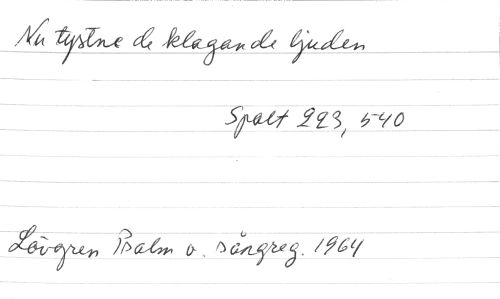 Nu tystne de klagande ljuden
Spalt 223, 540
Lövgren Psalm o. sångreg. 1964